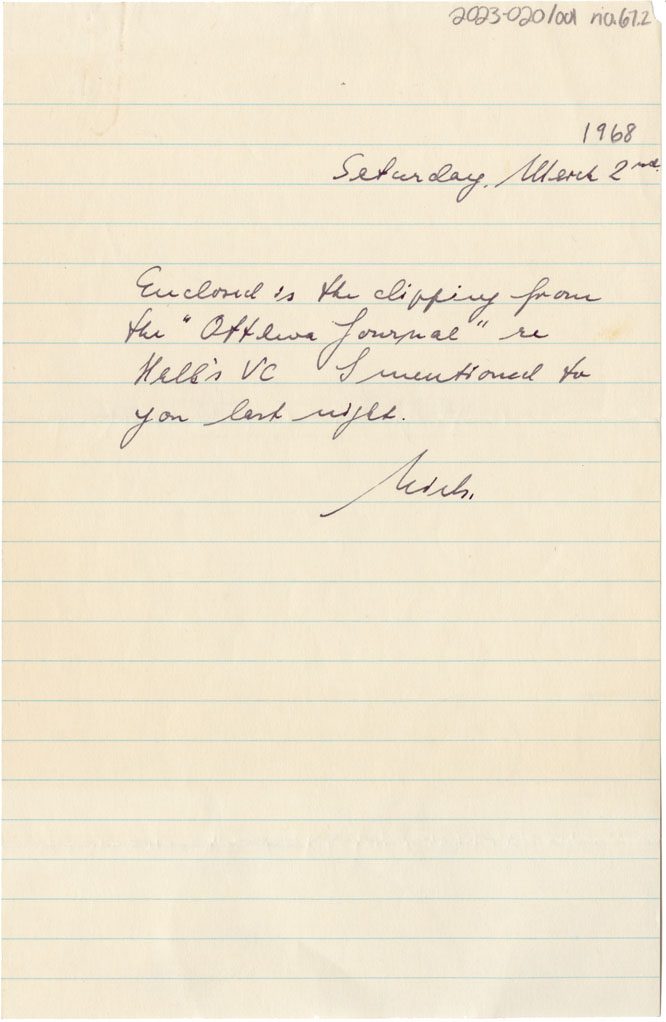 2023-020/001 no.67.2
1968
Saturday, March 2nd.
Enclosed is the clipping from
the "Ottawa Journal" re
Hall's VC I mentioned to
you last night.